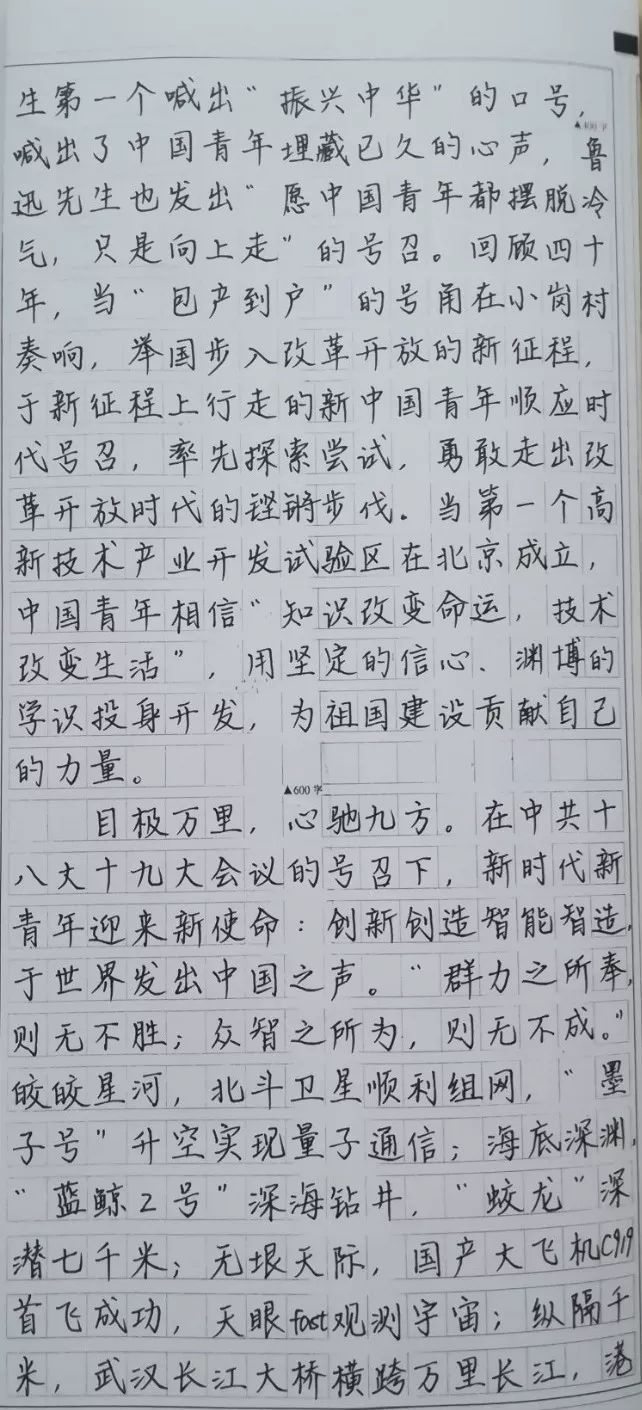 生第一个喊出“振兴中华”的口号，
▲400字
喊出了中国青年埋藏已久的心声，鲁
迅先生也发出“愿中国青年都摆脱冷
气，只是向上走”的号召。回顾四十
年，当“包产到户”的号角在小岗村
奏响，举国步入改革开放的新征程，
于新征程上行走的新中国青年顺应时
代号召，率先探索尝试，勇敢走出改
革开放时代的铿锵步伐。当第一个高
新技术产业开发试验区在北京成立，
中国青年相信“知识改变命运，技术
改变生活”，用坚定的信心、渊博的
学识投身开发，为祖国建设贡献自己
的力量。
▲600字
目极万里，心驰九方。在中共十
八大十九大会议的号召下，新时代新
青年迎来新使命：创新创造智能智造，
于世界发出中国之声。“群力之所奉，
则无不胜；众智之所为，则无不成。”
皎皎星河，北斗卫星顺利组网，“墨
子号”升空实现量子通信；海底深渊，
“蓝鲸2号”深海钻井，“蛟龙”深
潜七千米；无垠天际，国产大飞机C919
首飞成功，天眼fast观测宇宙；纵隔千
米，武汉长江大桥横跨万里长江，港